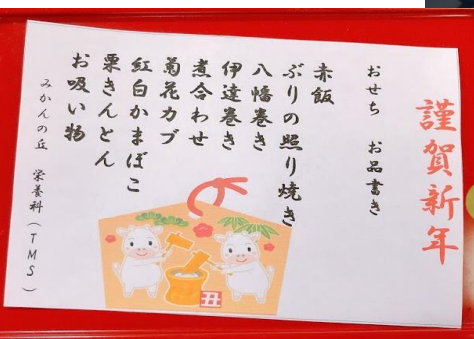 謹賀新年
おせち　お品書き
赤飯
ぶりの照り焼き
八幡巻き
伊達巻き
煮合わせ
菊花カブ
紅白かまぼこ
栗きんとん
お吸い物
みかんの丘　栄養科（TMS）
丑